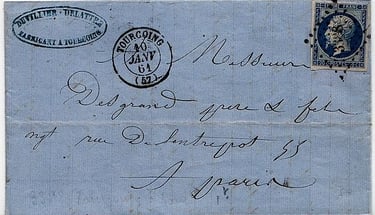 DUVILLIER-DELATTRE
FABRICANT A TOURCOING
TOURCOING
10
JANV
61
(57)
EMPIRE FRANC
Messieurs
Desgrand père & fils
rue De l'entrepot
A paris